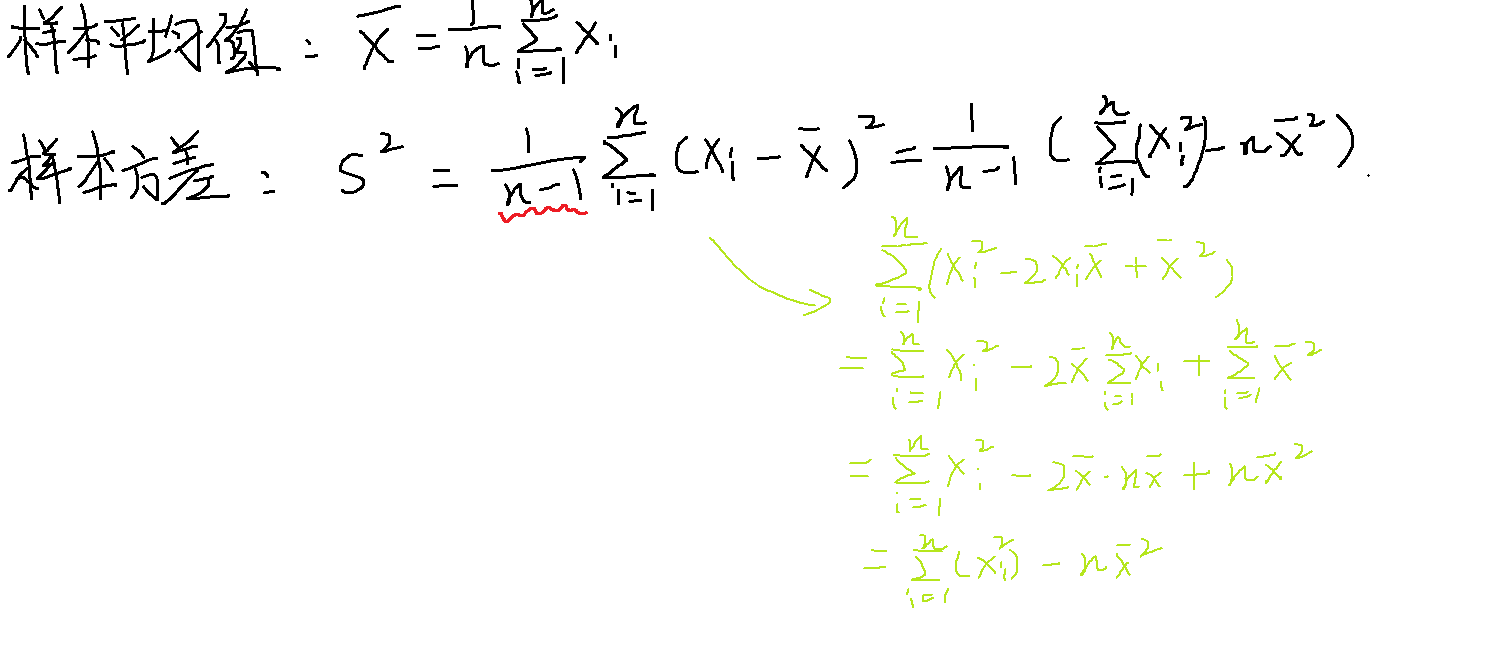 样本平均值: x̄ = 1/n ∑_{i=1}^{n} x_i
样本方差: S² = 1/(n-1) ∑_{i=1}^{n} (x_i - x̄)² = 1/(n-1) (∑_{i=1}^{n} (x_i²) - n x̄²).
∑_{i=1}^{n} (x_i² - 2x_i x̄ + x̄²)
= ∑_{i=1}^{n} x_i² - 2x̄ ∑_{i=1}^{n} x_i + ∑_{i=1}^{n} x̄²
= ∑_{i=1}^{n} x_i² - 2x̄·n x̄ + n x̄²
= ∑_{i=1}^{n} (x_i²) - n x̄²